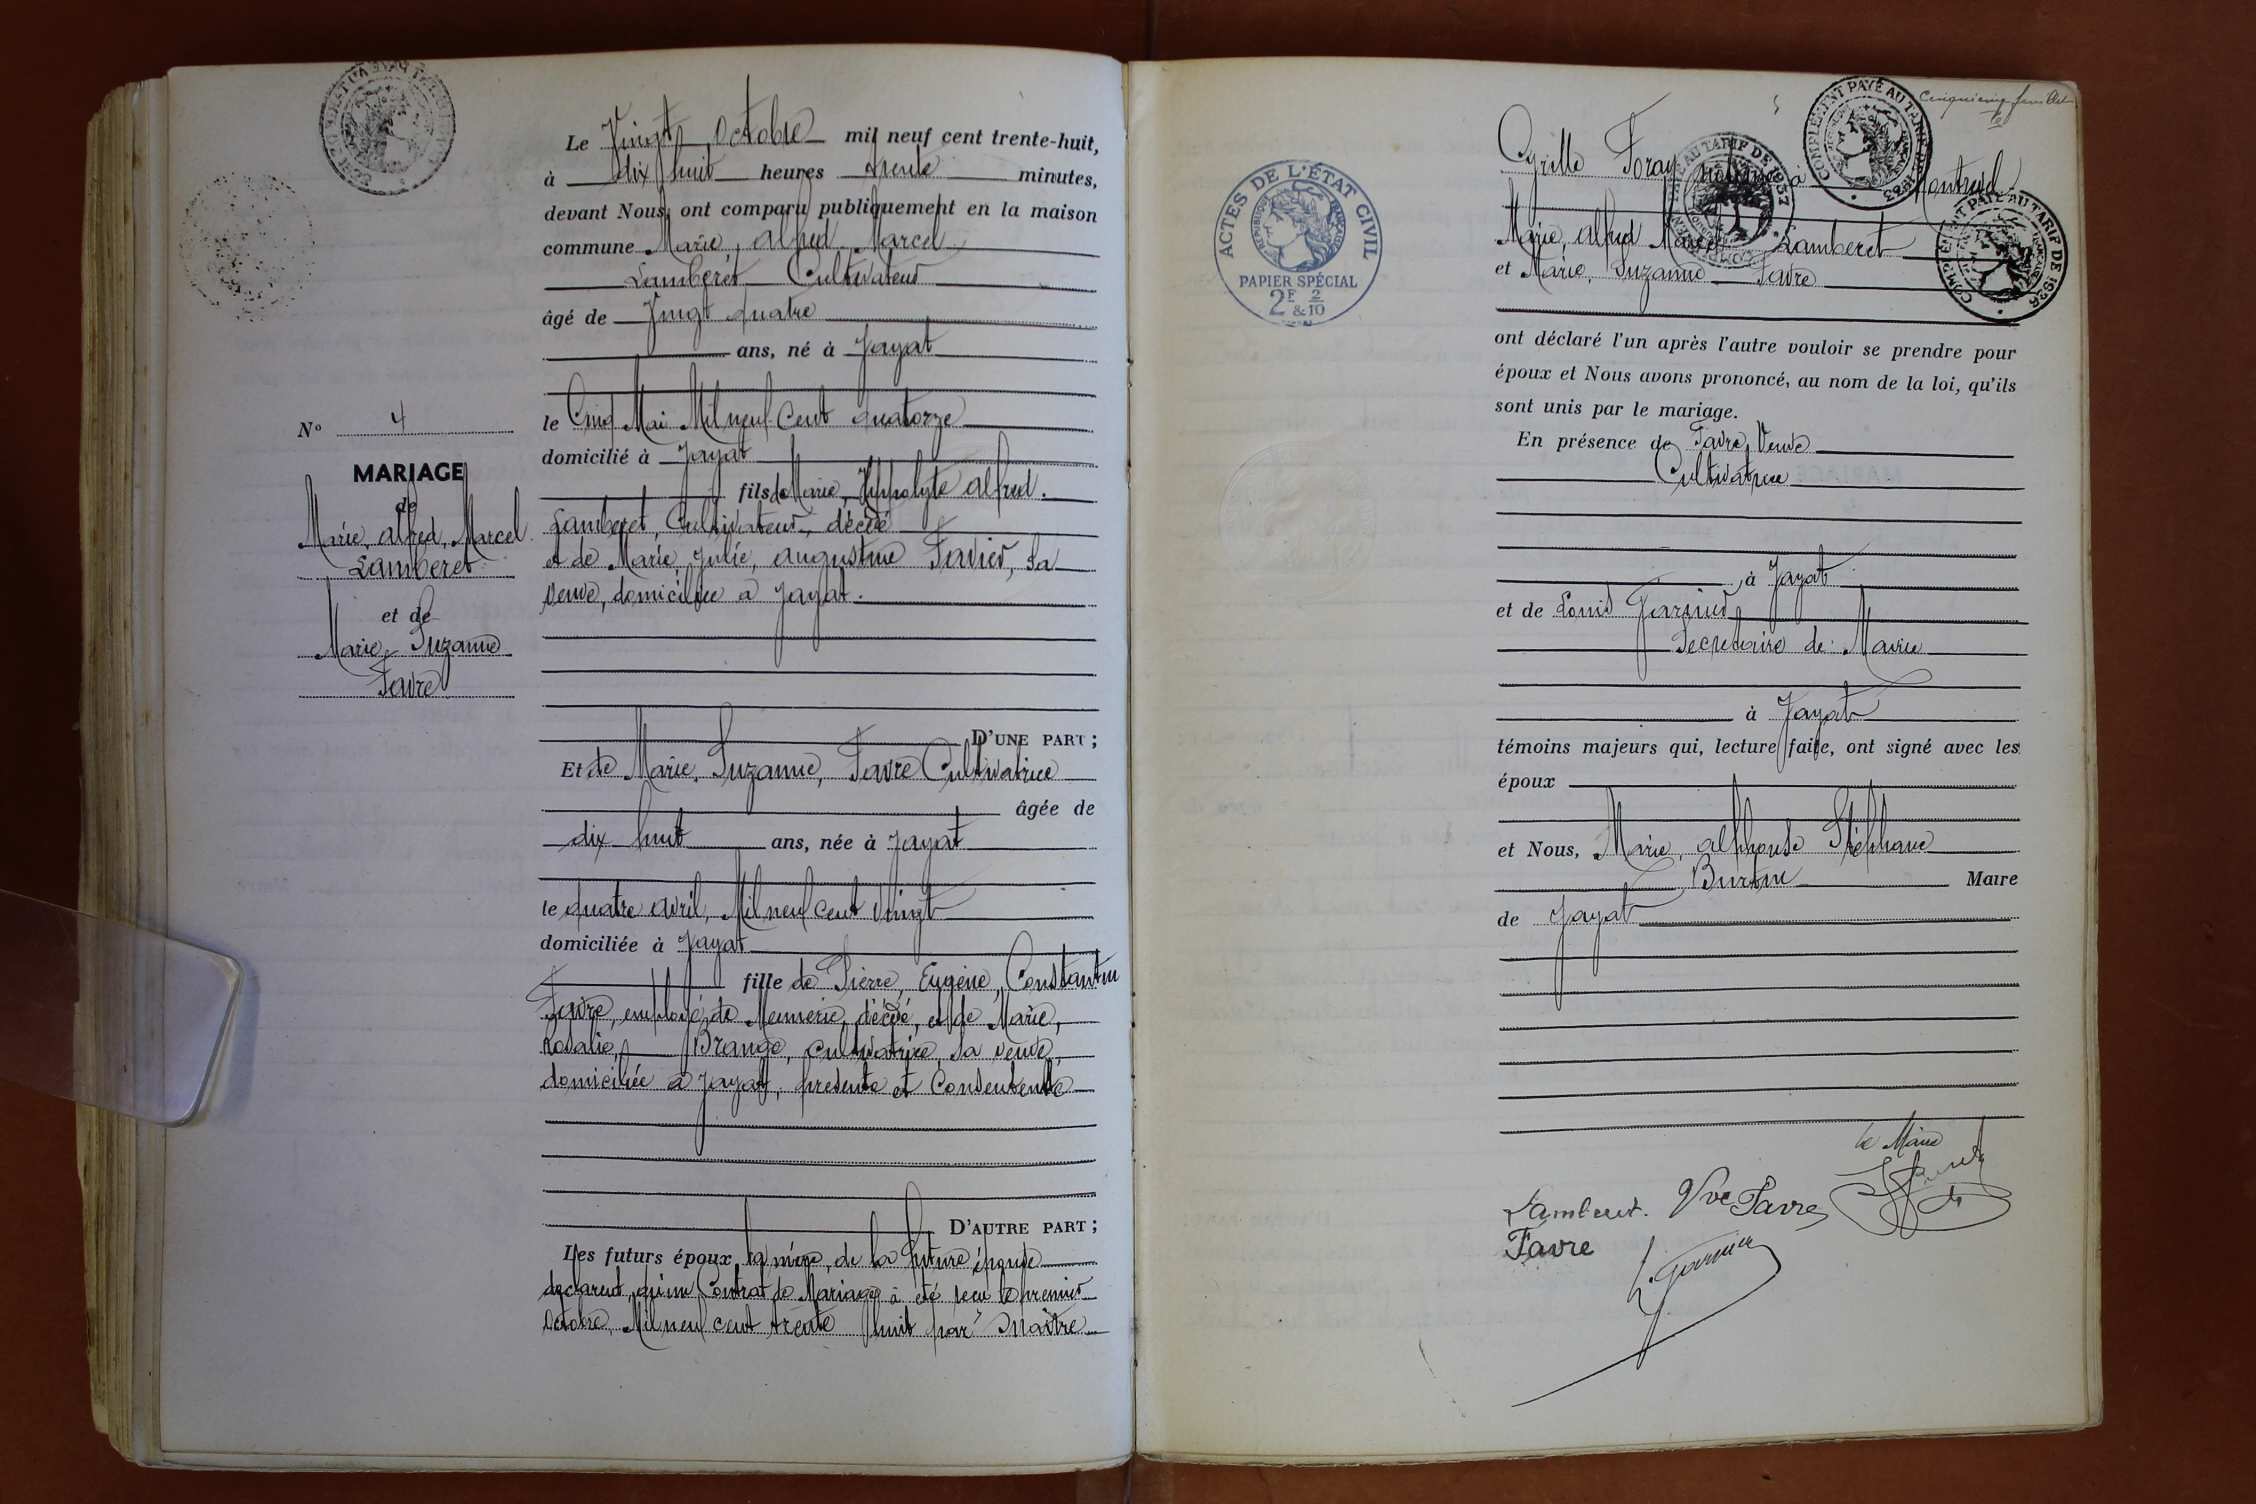 Le Vingt Octobre mil neuf cent trente-huit,
à dix huit heures trente minutes,
devant Nous, ont comparu publiquement en la maison
commune Marie, Alfred Marcel
Lamberet Cultivateur
âgé de Vingt quatre
ans, né à Jayat
le Cinq Mai Mil neuf Cent quatorze
domicilié à Jayat
fils de Marie, Hippolyte Alfred.
Lamberet, Cultivateur, décédé
et de Marie, Julie, Augustine Favier, Sa
Veuve, domiciliée à Jayat.
D'UNE PART ;
Et de Marie, Suzanne, Favre Cultivatrice
âgée de
dix huit ans, née à Jayat
le quatre avril, Mil neuf cent Vingt
domiciliée à Jayat
fille de Pierre, Eugène, Constantin
Favre, employé de Meunerie, décédé, et de Marie,
Rosalie, Brange, cultivatrice, sa veuve,
domiciliée à Jayat, présente et Consentente
D'AUTRE PART ;
Les futurs époux, la mère, de la future épouse
déclarent, qu'un Contrat de Mariage à été reçu le premier
Octobre, Mil neuf cent trente huit par Maitre
N° 4
MARIAGE
de
Marie, Alfred, Marcel
Lamberet
et de
Marie, Suzanne
Favre
cinquième feuillet
ACTES DE L'ÉTAT CIVIL
PAPIER SPÉCIAL
2F 2/10
&
COMPLÉMENT PAYÉ AU TARIF DE 1933
COMPLÉMENT PAYÉ AU TARIF DE 1937
COMPLÉMENT PAYÉ AU TARIF DE 1926
Cyrille Foray notaire à Montrevel
Marie, Alfred Marcel Lamberet
et Marie, Suzanne Favre
ont déclaré l'un après l'autre vouloir se prendre pour
époux et Nous avons prononcé, au nom de la loi, qu'ils
sont unis par le mariage.
En présence de Favre, Veuve
Cultivatrice
à Jayat
et de Louis Garnier
Secrétaire de Mairie
à Jayat
témoins majeurs qui, lecture faite, ont signé avec les
époux
et Nous, Marie, Alphonse Stéphane
Burtin Maire
de Jayat
le Maire
Lamberet. Vve Favre
Favre
L. Garnier